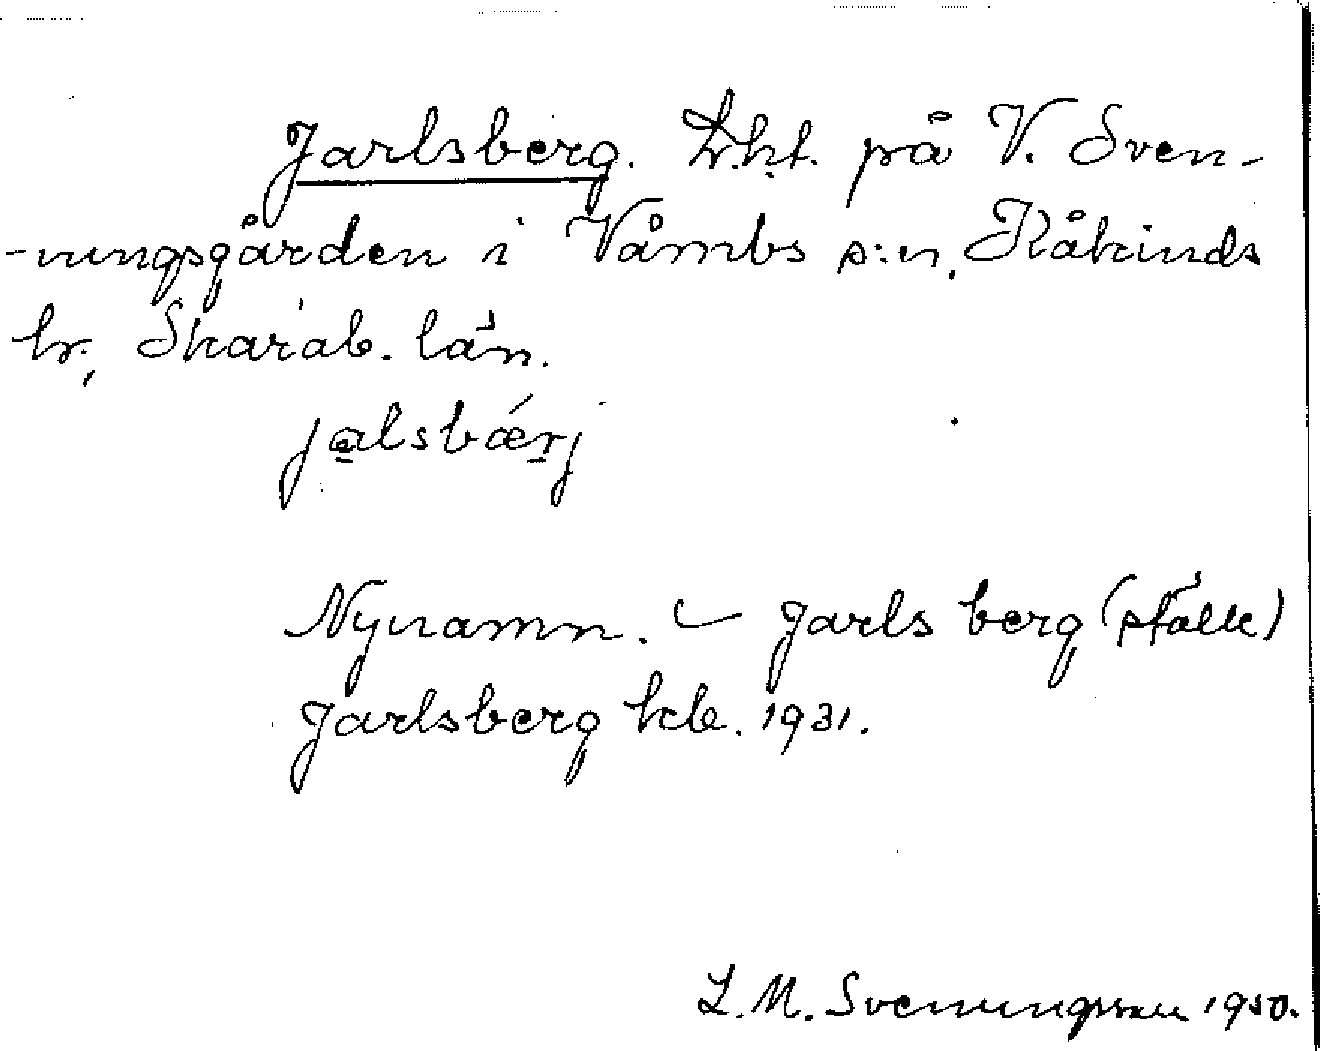 Jarlsberg. Lht. på V. Sven-
-ningsgården i Våmbs s:n, Kåkinds
hr, Skarab. län.
jalsbǽrj
Nynamn. ⌣ Jarlsberg (ställe)
Jarlsberg kb. 1931.
L. M. Svenungsson 1930.